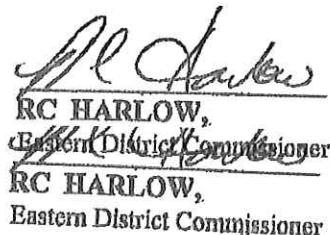 RC Harlow
RC HARLOW,
Eastern District Commissioner
RC HARLOW,
Eastern District Commissioner